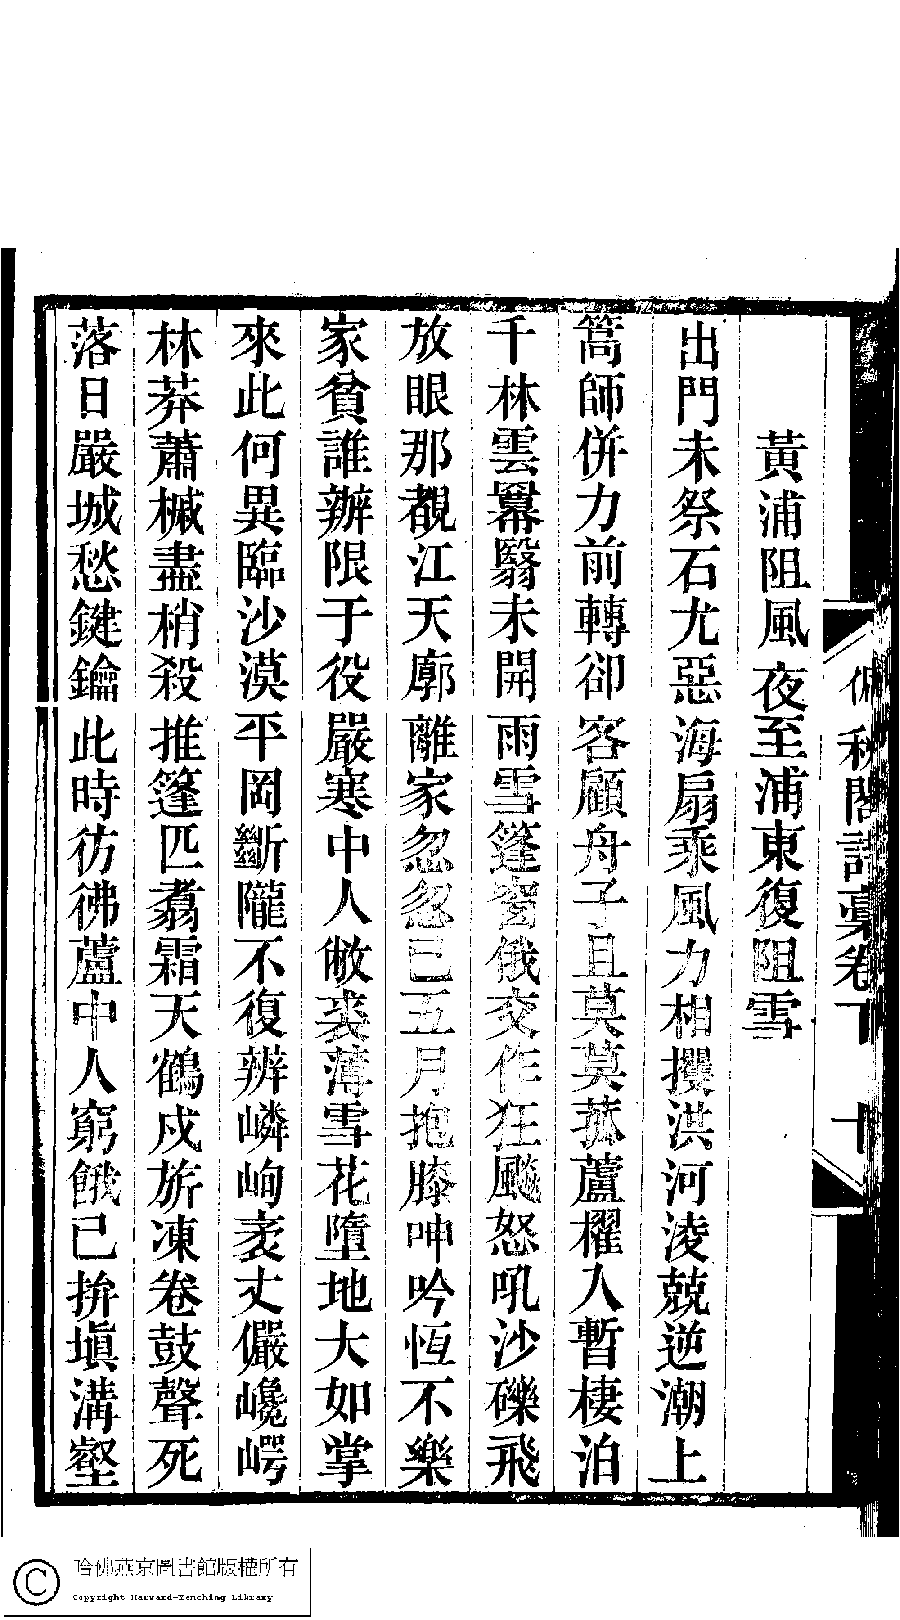 秋閣詩稾卷下 十
黃浦阻風夜至浦東復阻雪
出門未祭石尤惡海扇乘風力相攖洪河淩兢逆潮上
篙師併力前轉卻客顧舟子且莫莫菰蘆櫂人暫棲泊
千林雲羃翳未開雨雪篷窗俄交作狂颷怒吼沙礫飛
放眼那覩江天廓離家忽忽已五月抱膝呻吟恆不樂
家貧誰辦限于役嚴寒中人敝裘薄雪花墮地大如掌
來此何異臨沙漠平岡斷隴不復辨嶙峋袤丈儼巉崿
林莽蕭槭盡梢殺推篷匹翥霜天鶴戍旂凍卷鼓聲死
落日嚴城愁鍵鑰此時彷彿蘆中人窮餓已拚塡溝壑
哈佛燕京圖書館版權所有
Copyright Harvard-Yenching Library